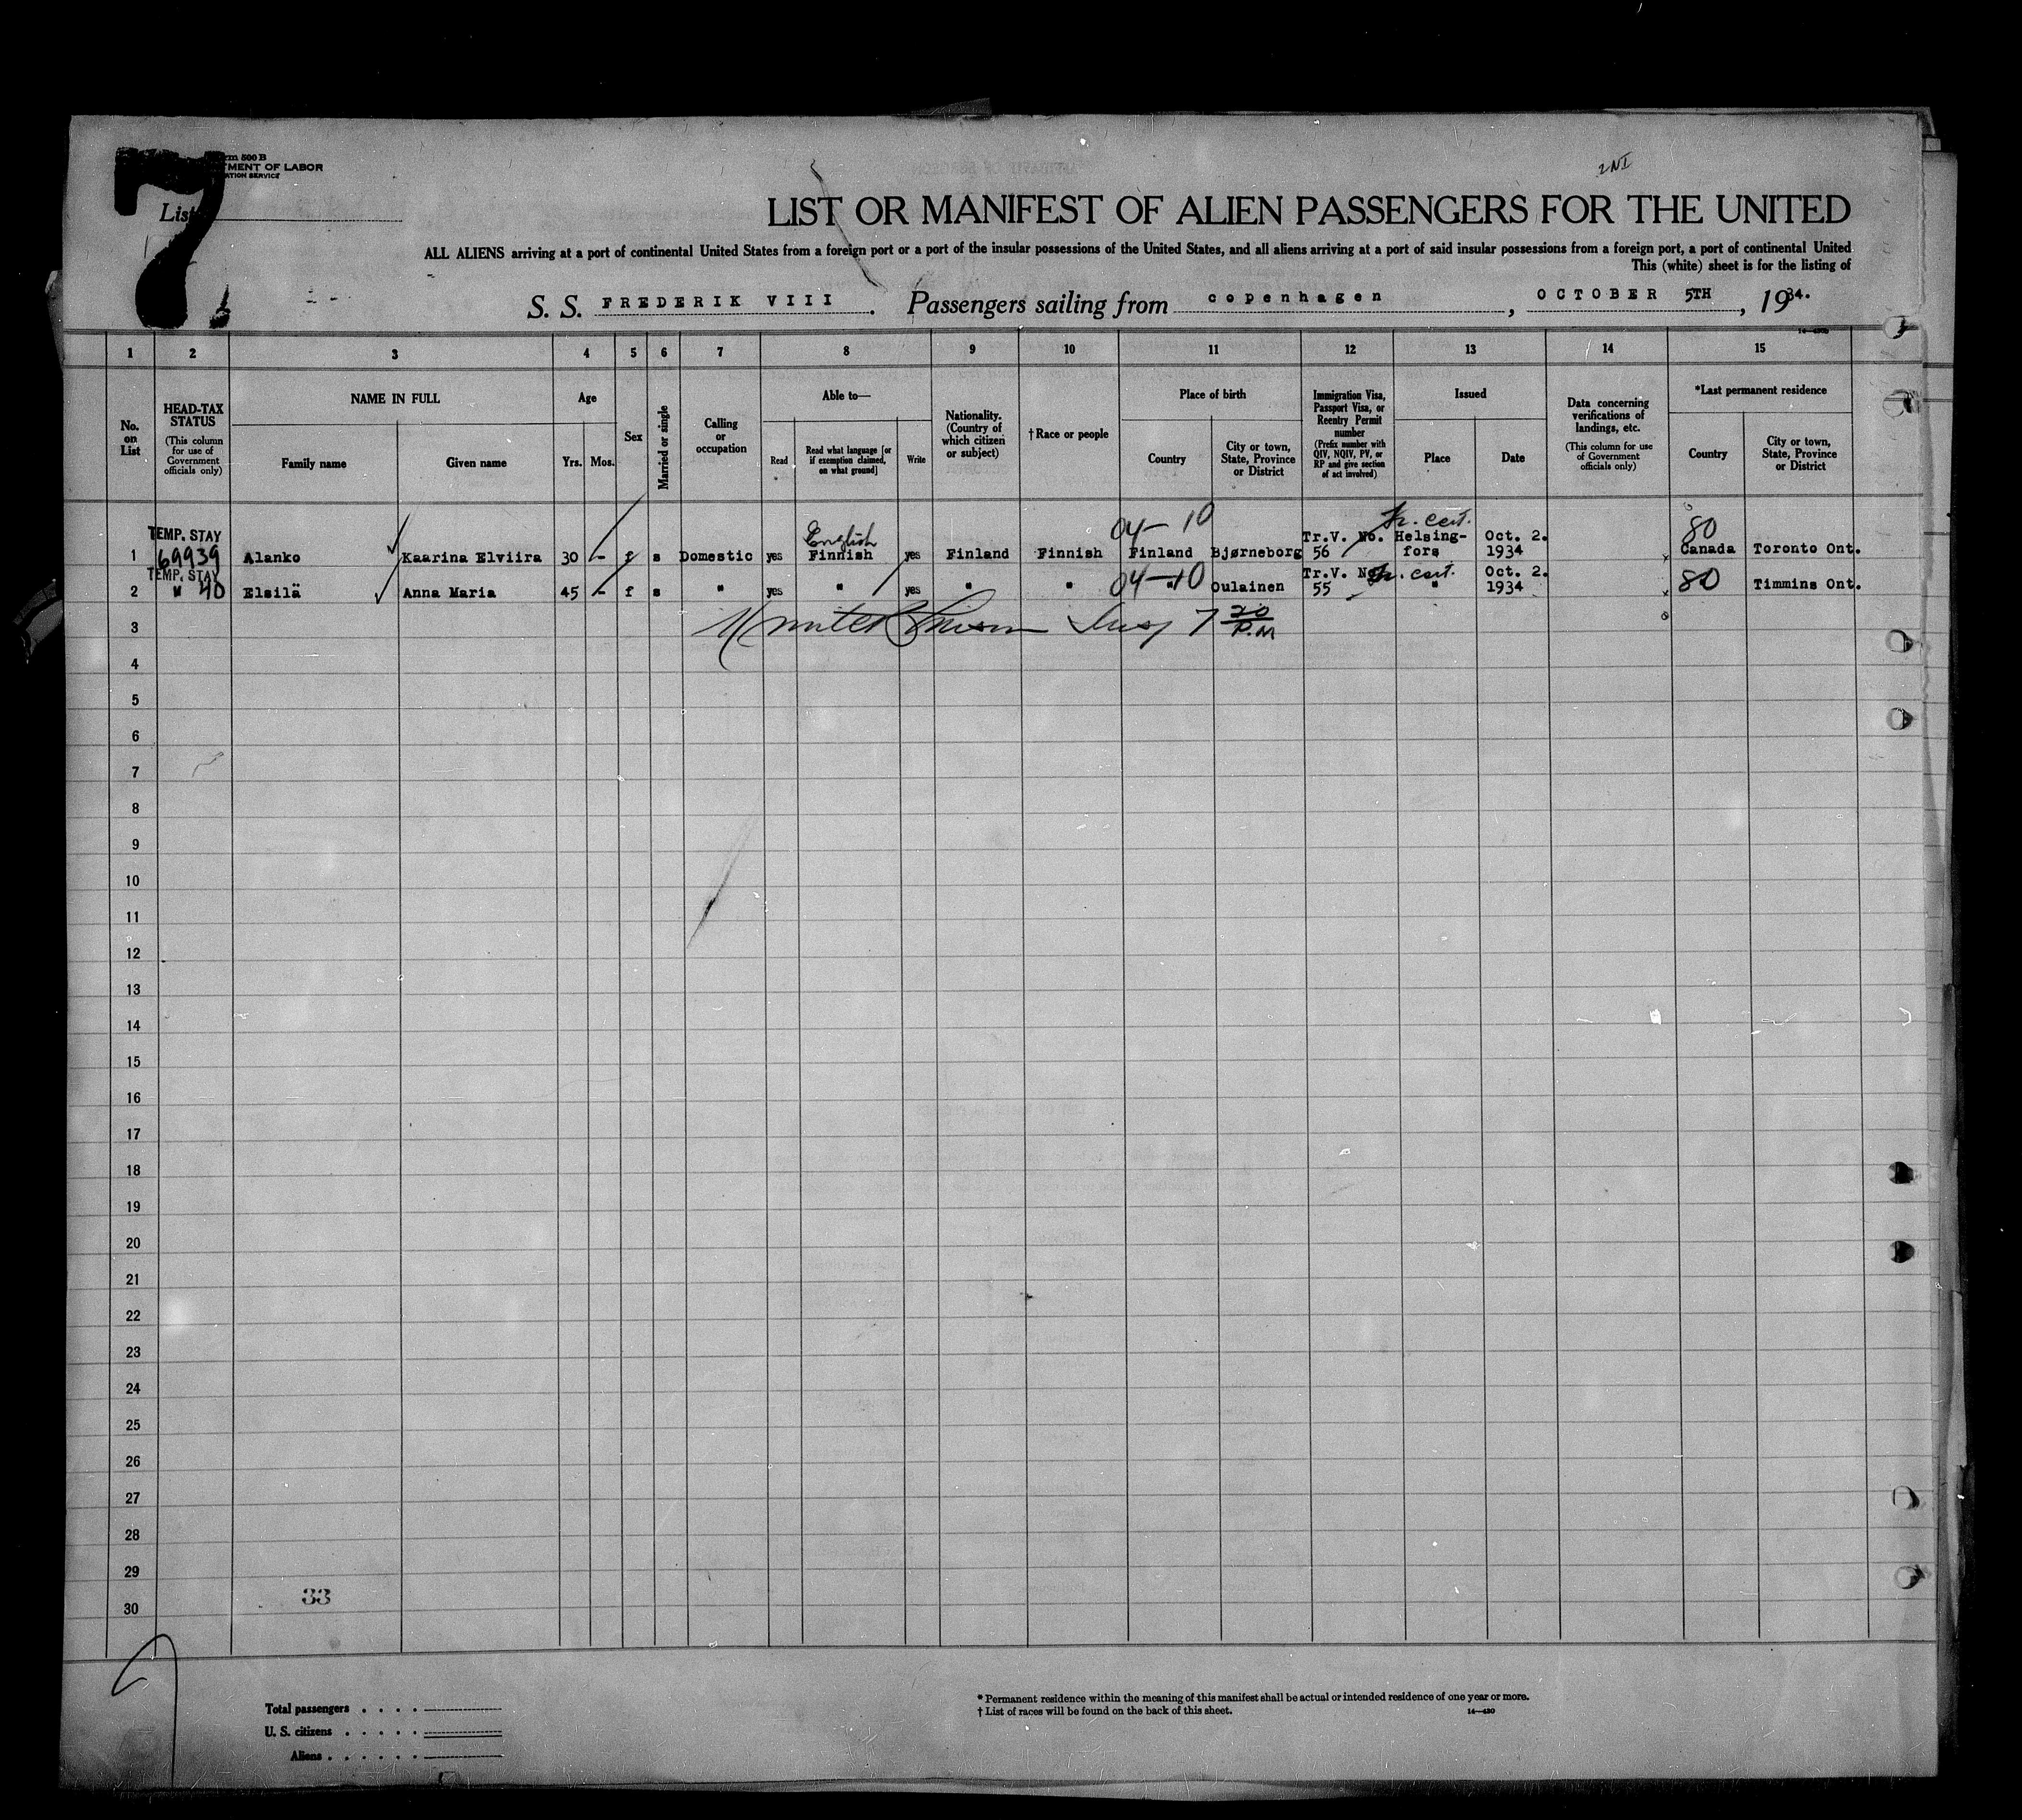 7.
rm 500 B
TMENT OF LABOR
ATION SERVICE
List
2ND
LIST OR MANIFEST OF ALIEN PASSENGERS FOR THE UNITED
ALL ALIENS arriving at a port of continental United States from a foreign port or a port of the insular possessions of the United States, and all aliens arriving at a port of said insular possessions from a foreign port, a port of continental United
This (white) sheet is for the listing of
S. S. FREDERIK VIII. Passengers sailing from copenhagen, OCTOBER 5TH, 1934.
1 2 3 4 5 6 7 8 9 10 11 12 13 14 15
No. on List
HEAD-TAX STATUS (This column for use of Government officials only)
NAME IN FULL
Family name
Given name
Age
Yrs. Mos.
Sex
Married or single
Calling or occupation
Able to—
Read
Read what language [or if exemption claimed, on what ground]
Write
Nationality. (Country of which citizen or subject)
†Race or people
Place of birth
Country
City or town, State, Province or District
Immigration Visa, Passport Visa, or Reentry Permit number (Prefix number with QIV, NQIV, PV, or RP and give section of act involved)
Issued
Place
Date
Data concerning verifications of landings, etc. (This column for use of Government officials only)
*Last permanent residence
Country
City or town, State, Province or District
TEMP. STAY English 04-10 Tr.V. No. Tr. cert. Helsing- Oct. 2. 80
1 69939 Alanko Kaarina Elviira 30 - f s Domestic yes Finnish yes Finland Finnish Finland Bjørneborg 56 fors 1934 Canada Toronto Ont.
TEMP. STAY 04-10 Tr.V. No. Tr. cert. Oct. 2.
2 " 40 Elsilä Anna Maria 45 - f s " yes " yes " " " Oulainen 55 " 1934 80 Timmins Ont.
3 Insp 7 20 P.M
4
5
6
7
8
9
10
11
12
13
14
15
16
17
18
19
20
21
22
23
24
25
26
27
28
29
33
30
Total passengers . . . .
U. S. citizens . . . . .
Aliens . . . . . .
* Permanent residence within the meaning of this manifest shall be actual or intended residence of one year or more.
† List of races will be found on the back of this sheet.
14—430